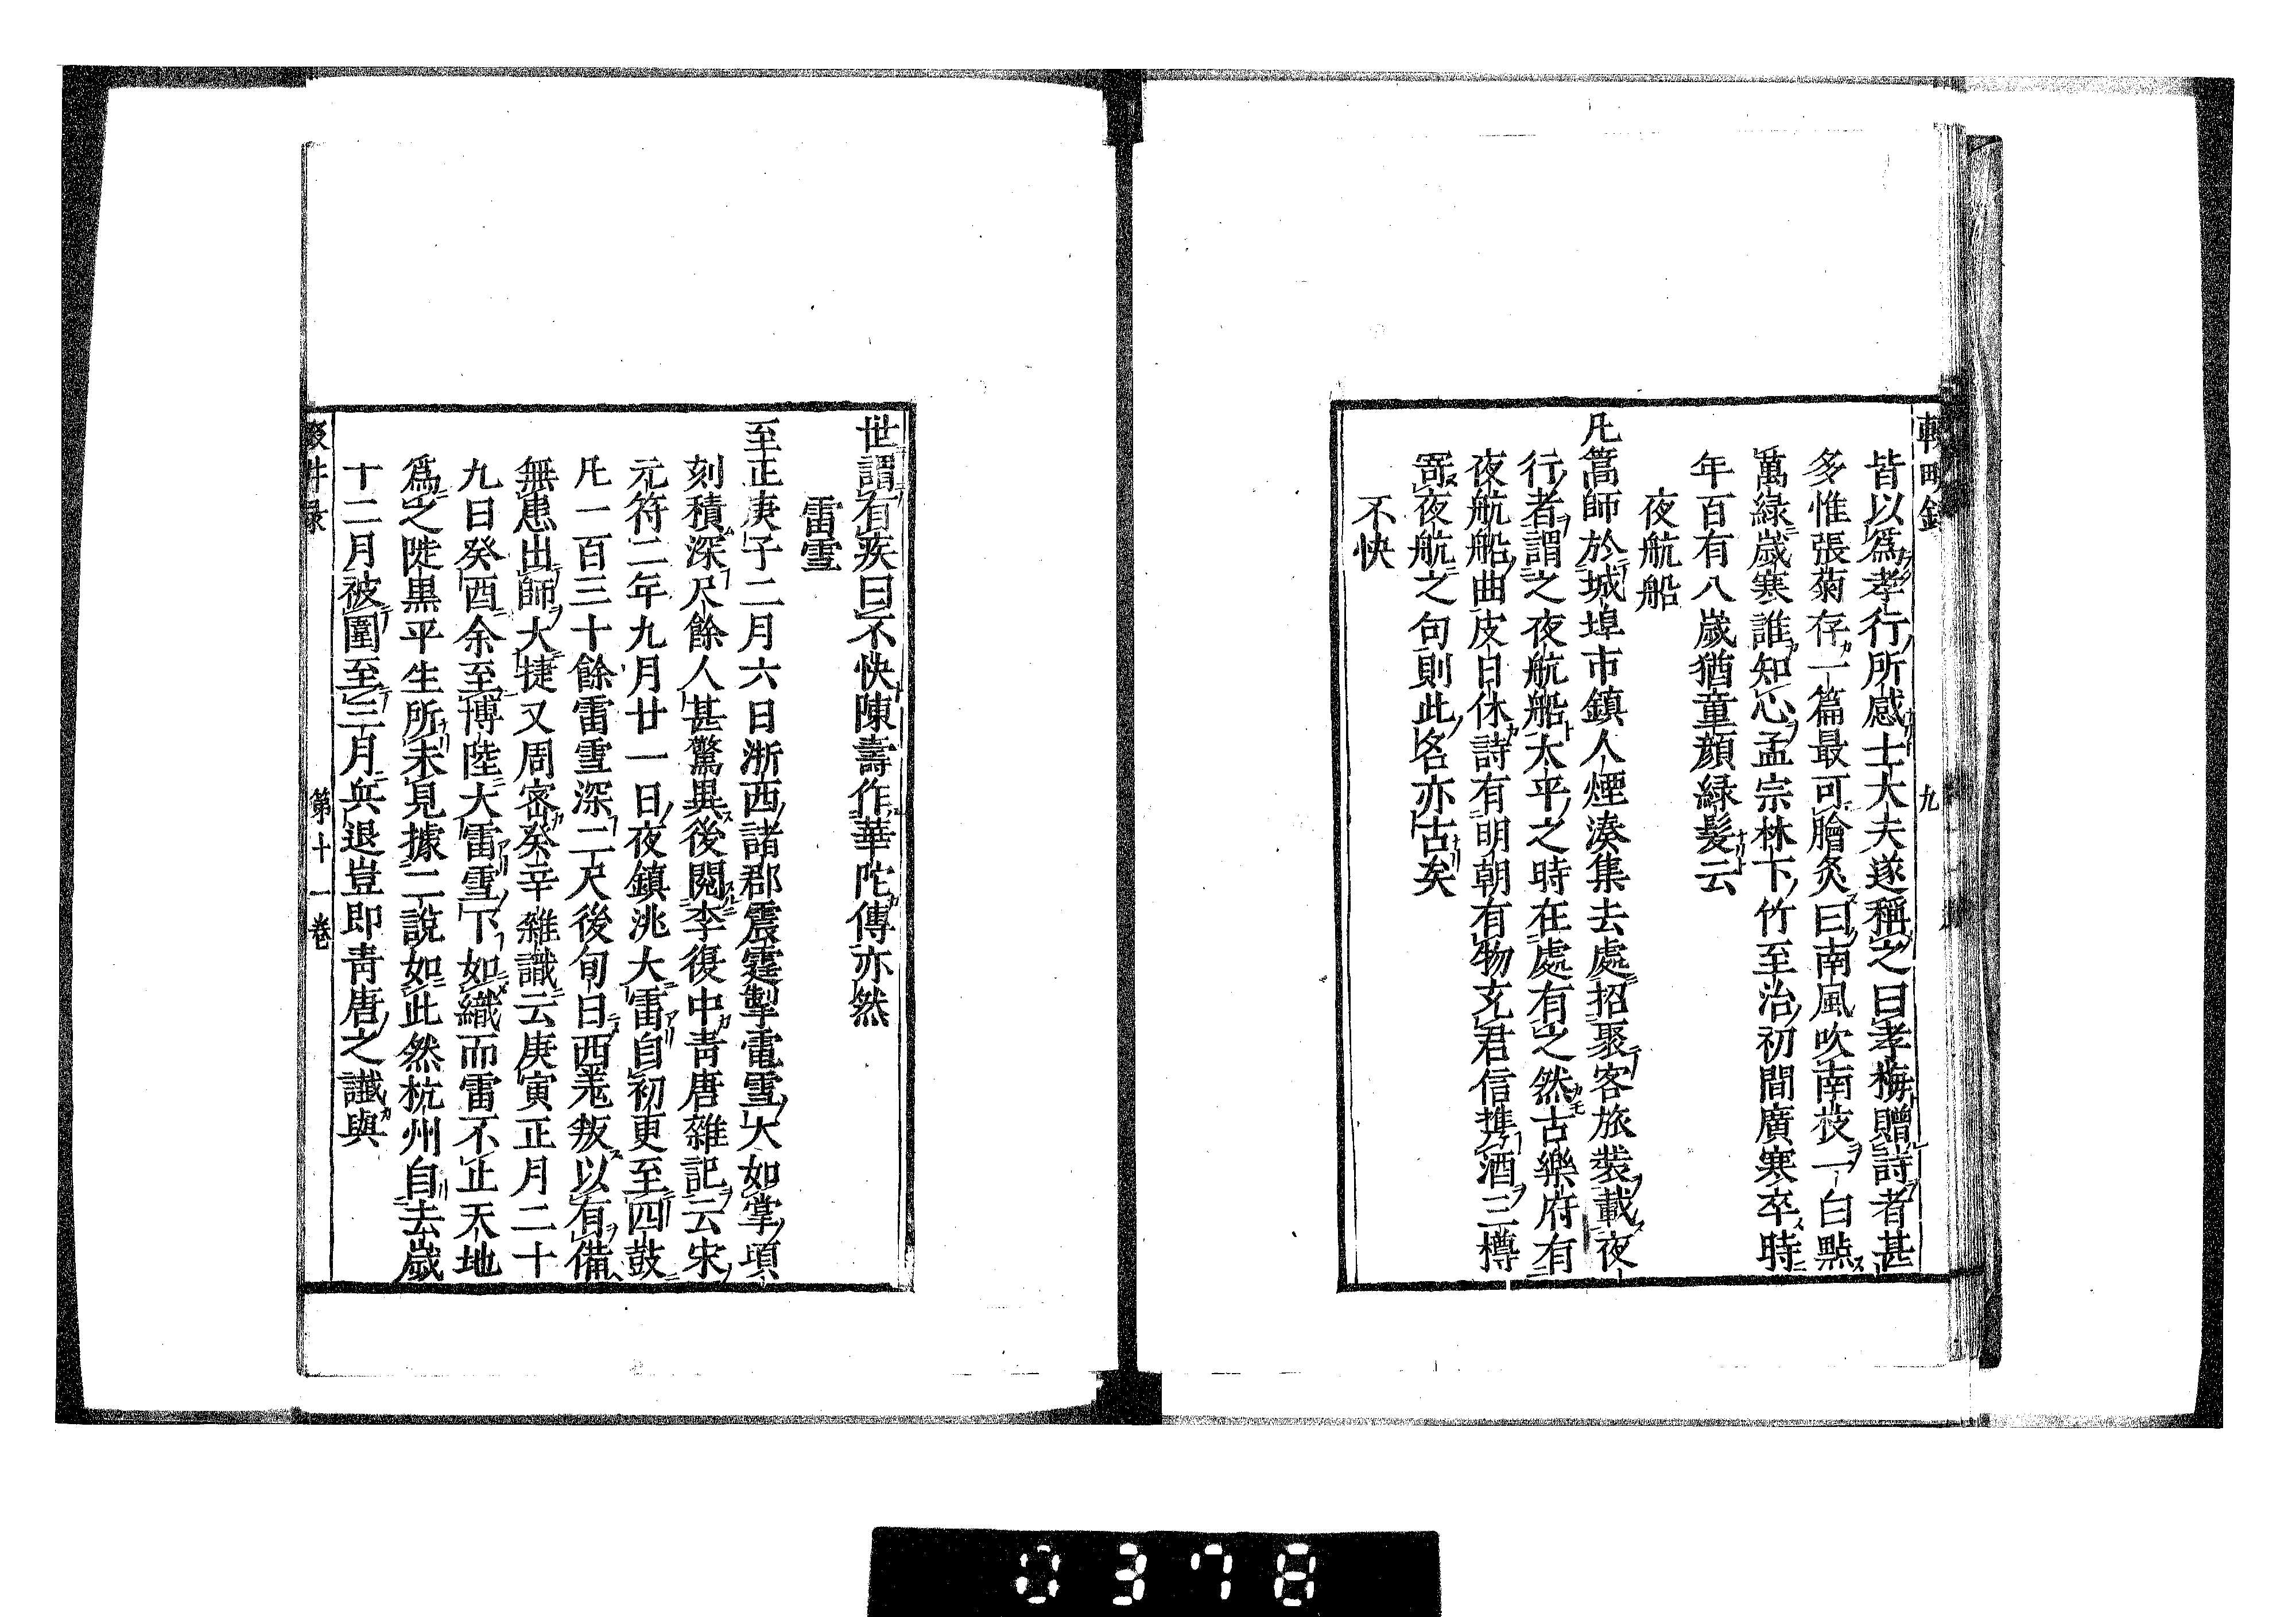 輟畊録
九
皆以爲孝行所感士大夫遂稱之曰孝梅贈詩者甚
多惟張菊存一篇最可膾炙曰南風吹南枝一白點
萬緑歳寒誰知心孟宗林下竹至治初間廣寒卒時
年百有八歳猶童顔緑髪云
夜航船
凡篙師於城埠市鎮人煙湊集去處招聚客旅裝載夜
行者謂之夜航船太平之時在處有之然古樂府有
夜航船曲皮日休詩有明朝有物充君信携酒三樽
寄夜航之句則此名亦古矣
不快
世謂有疾曰不快陳壽作華陀傳亦然
雷雪
至正庚子二月六日浙西諸郡震霆掣電雪大如掌頃
刻積深尺餘人甚驚異後閲李復中青唐雜記云宋
元符二年九月廿一日夜鎮洮大雷自初更至四鼓
凡一百三十餘雷雪深二尺後旬日西羌叛以有備
無患出師大捷又周密癸辛雜識云庚寅正月二十
九日癸酉余至博陸大雷雪下如織而雷不止天地
爲之陡黒平生所未見據二說如此然杭州自去歳
十二月被圍至三月兵退豈即青唐之讖與
輟畊録
第十一卷
0378